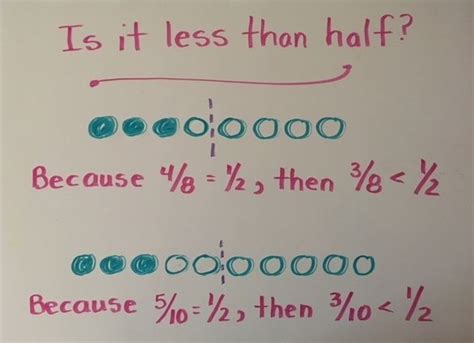 Is it less than half?
Because 4/8 = 1/2, then 3/8 < 1/2
Because 5/10 = 1/2, then 3/10 < 1/2